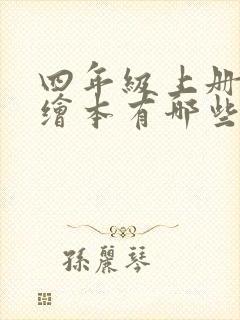 四年級上册
繪本有哪些
孫麗琴